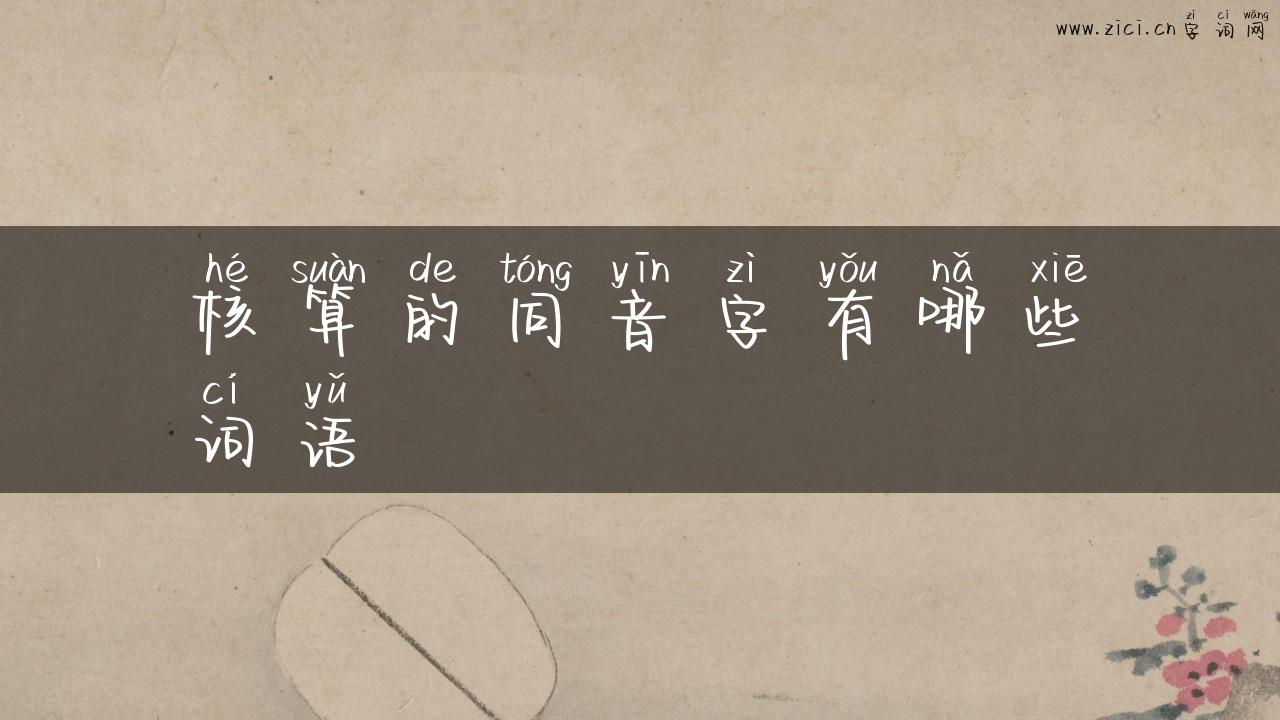 zì cí wǎng
www.zici.cn 字 词 网
hé suàn de tóng yīn zì yǒu nǎ xiē
核 算 的 同 音 字 有 哪 些
cí yǔ
词 语